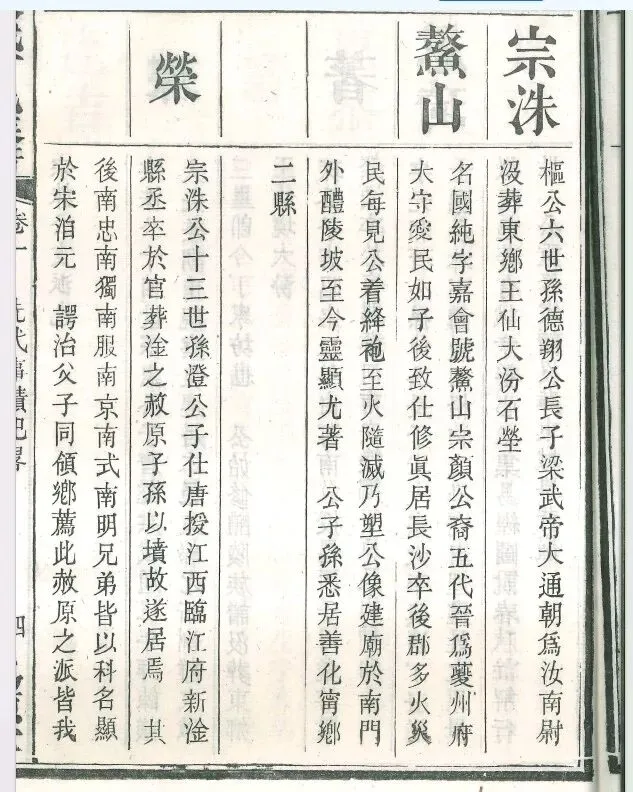 宗洙
樞公六世孫德翔公長子梁武帝大通朝爲汝南尉
沒葬東鄉王仙大汾石塋
鰲山
名國純字嘉會號鰲山宗顏公裔五代晉爲夔州府
大守愛民如子後致仕修眞居長沙卒後郡多火災
民每見公着絳袍至火隨滅乃塑公像建廟於南門
外醴陵坡至今靈顯尤著 公子孫悉居善化甯鄉
二縣
榮
宗洙公十三世孫澄公子仕唐授江西臨江府新淦
縣丞卒於官葬淦之赦原子孫以墳故遂居焉 其
後南忠南獨南服南京南式南明兄弟皆以科名顯
於宋洎元 諤治父子同領鄉薦此赦原之派皆我
卷一
先代事蹟記畧
四